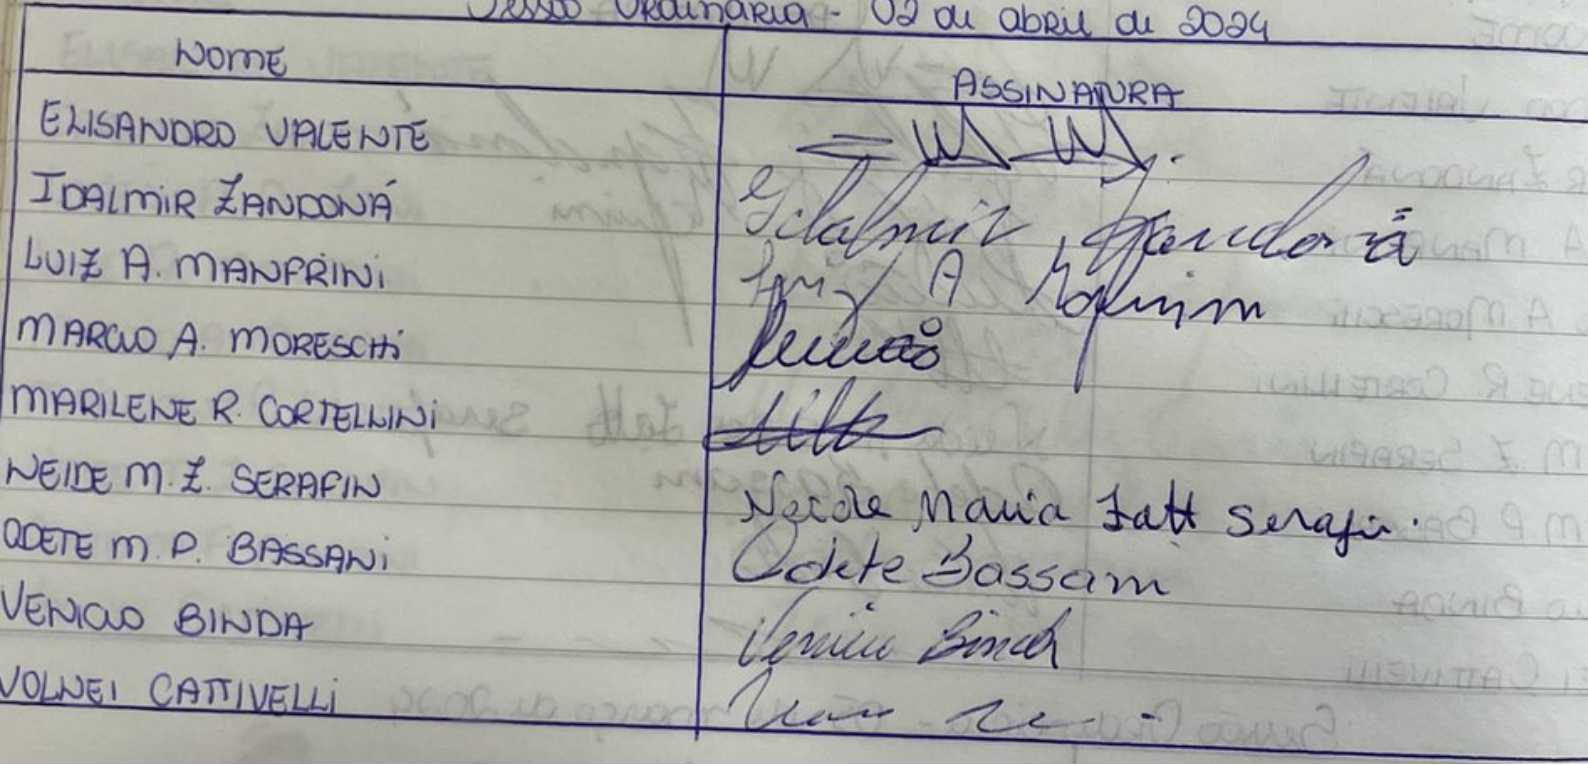 Sessão Ordinária - 02 de abril de 2024
NOME ASSINATURA
ELISANDRO VALENTE
IDALMIR ZANDONÁ Idalmir Zandoná
LUIZ A. MANFRINI Luiz A
MARCIO A. MORESCHI
MARILENE R. CORTELLINI
NEIDE M. Z. SERAFIN Neide Maria Zatt Serafin.
ODETE M. P. BASSANI Odete Bassani
VENICIO BINDA Venicio Binda
VOLNEI CATTIVELLI